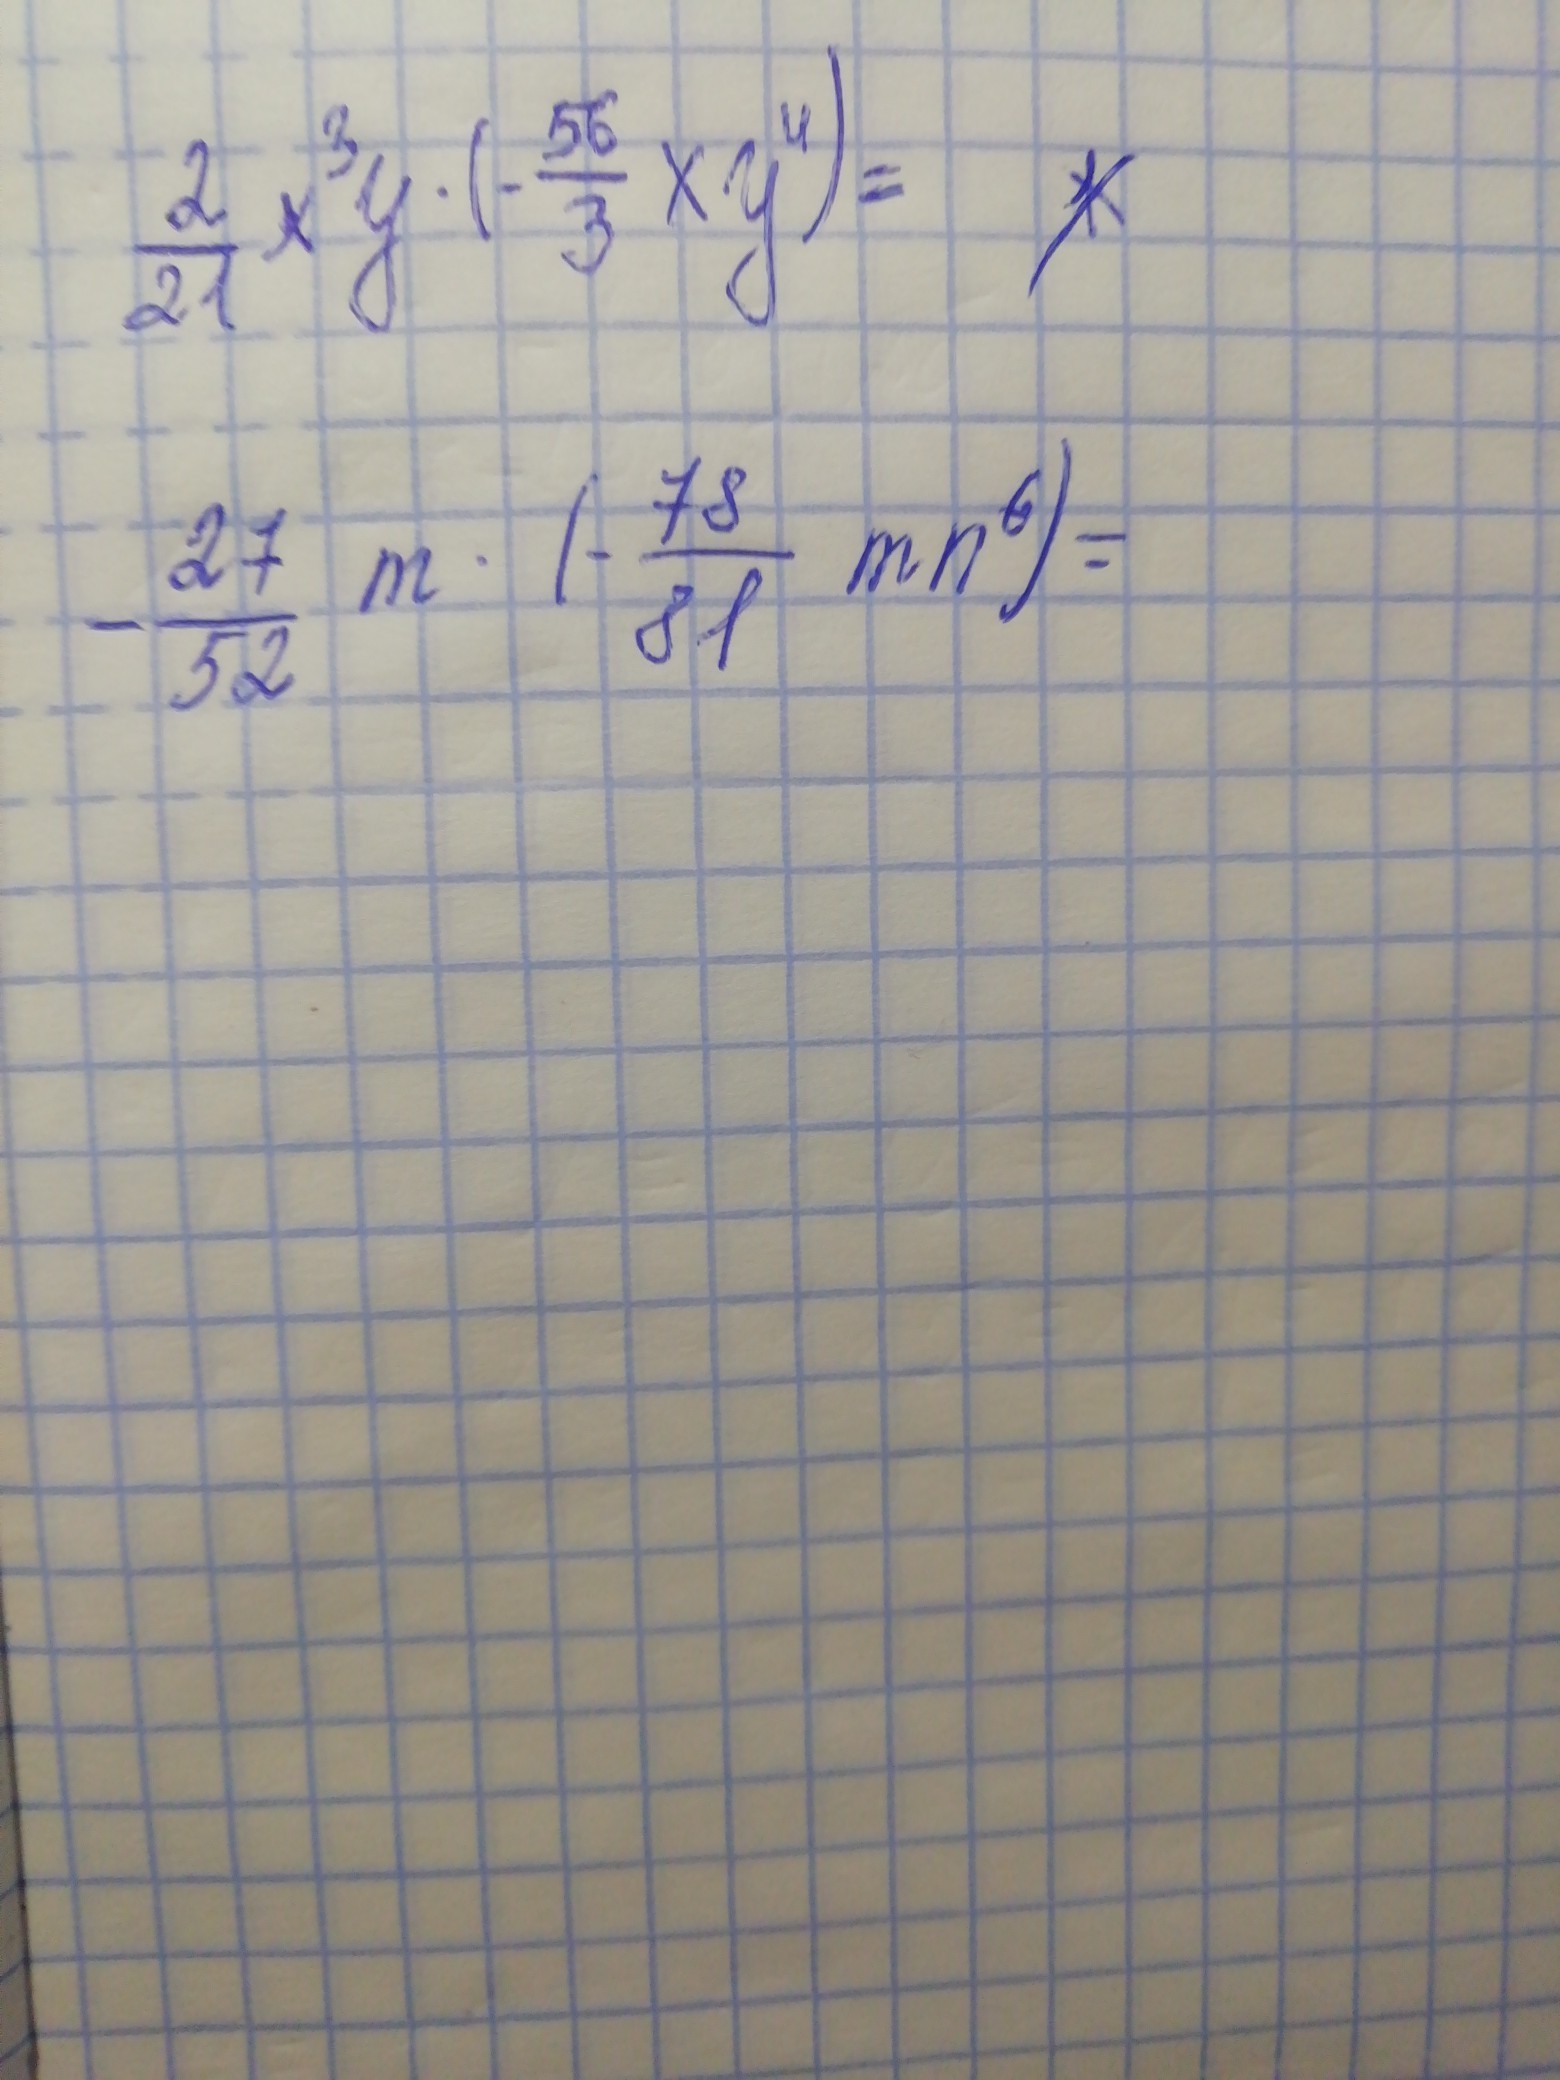 2/21 x³y · (- 56/3 xy⁴) =
- 27/52 m · (- 78/81 mn⁶) =